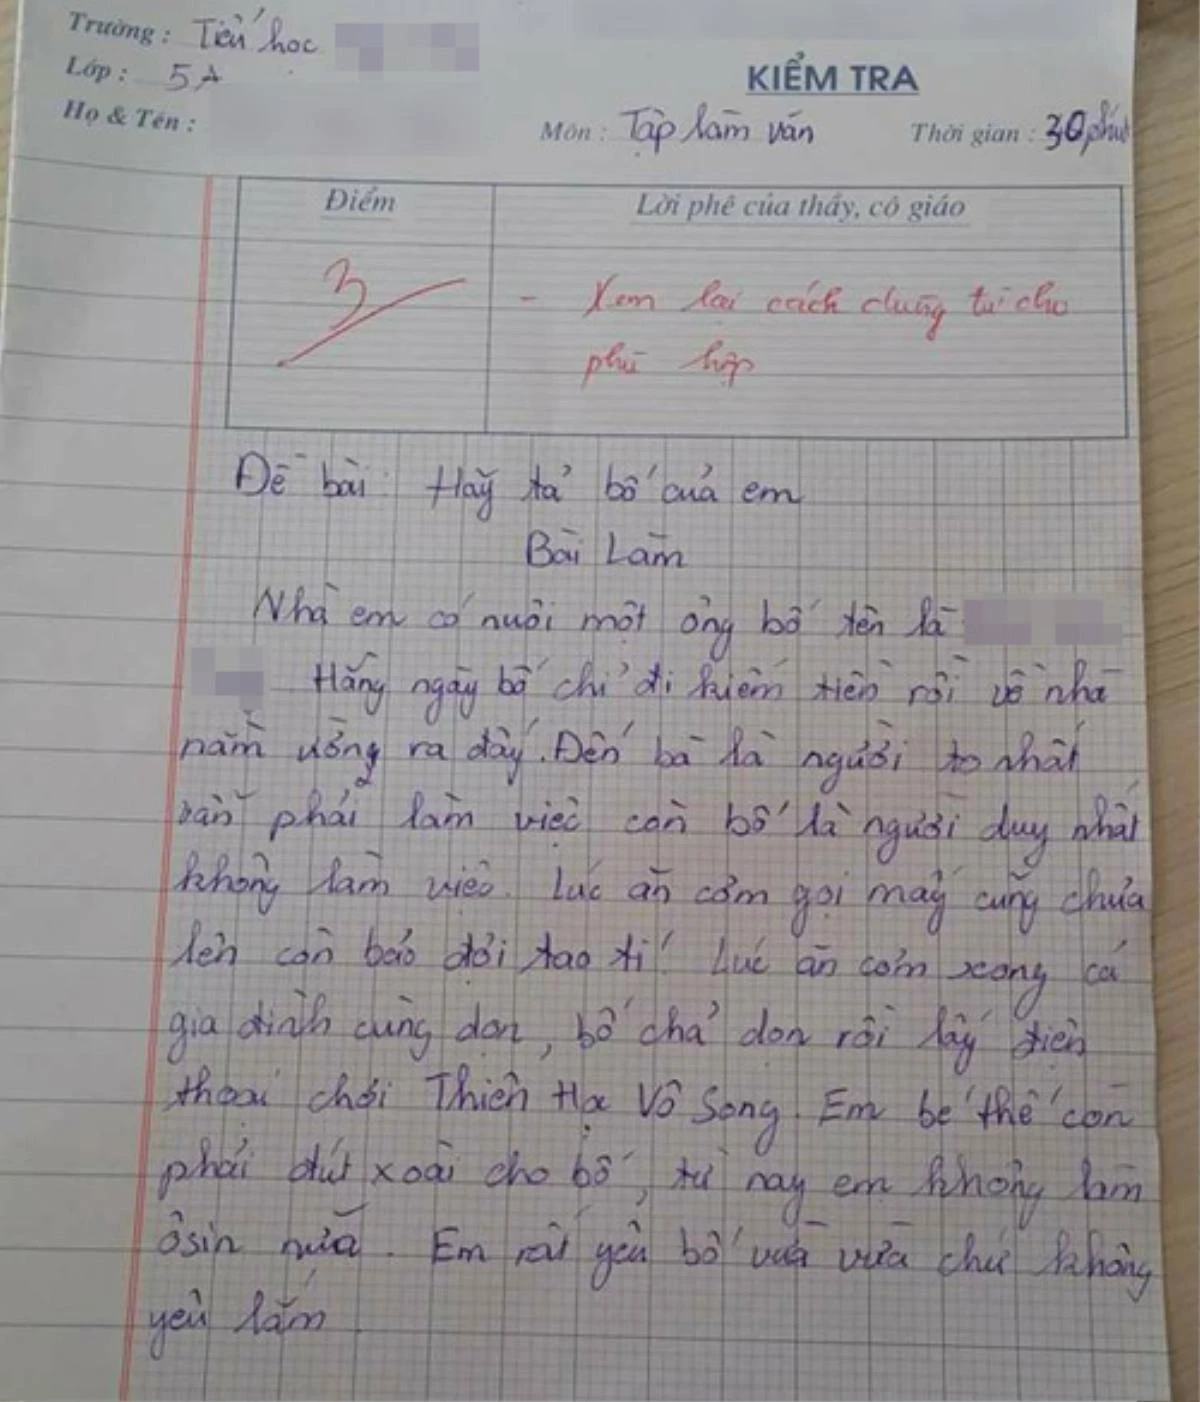 Trường : Tiểu học
Lớp : 5A
Họ & Tên :
KIỂM TRA
Môn : Tập làm văn Thời gian : 30 phút
Điểm
Lời phê của thầy, cô giáo
3
- Xem lại cách dùng từ cho
phù hợp
Đề bài : Hãy tả bố của em
Bài Làm
Nhà em có nuôi một ông bố tên là
Hằng ngày bố chỉ đi kiếm tiền rồi về nhà
nằm ưỡng ra đấy. Đến bà là người to nhất
vẫn phải làm việc còn bố là người duy nhất
không làm việc. Lúc ăn cơm gọi mãy cũng chưa
lên còn bảo đợi tao tí. Lúc ăn cơm xong cả
gia đình cùng dọn, bố chả dọn rồi lấy điện
thoại chơi Thiên Hạ Vô Song. Em bé thế còn
phải đút xoài cho bố, từ nay em không làm
ôsin nữa. Em rất yêu bố vừa vừa chứ không
yêu lắm